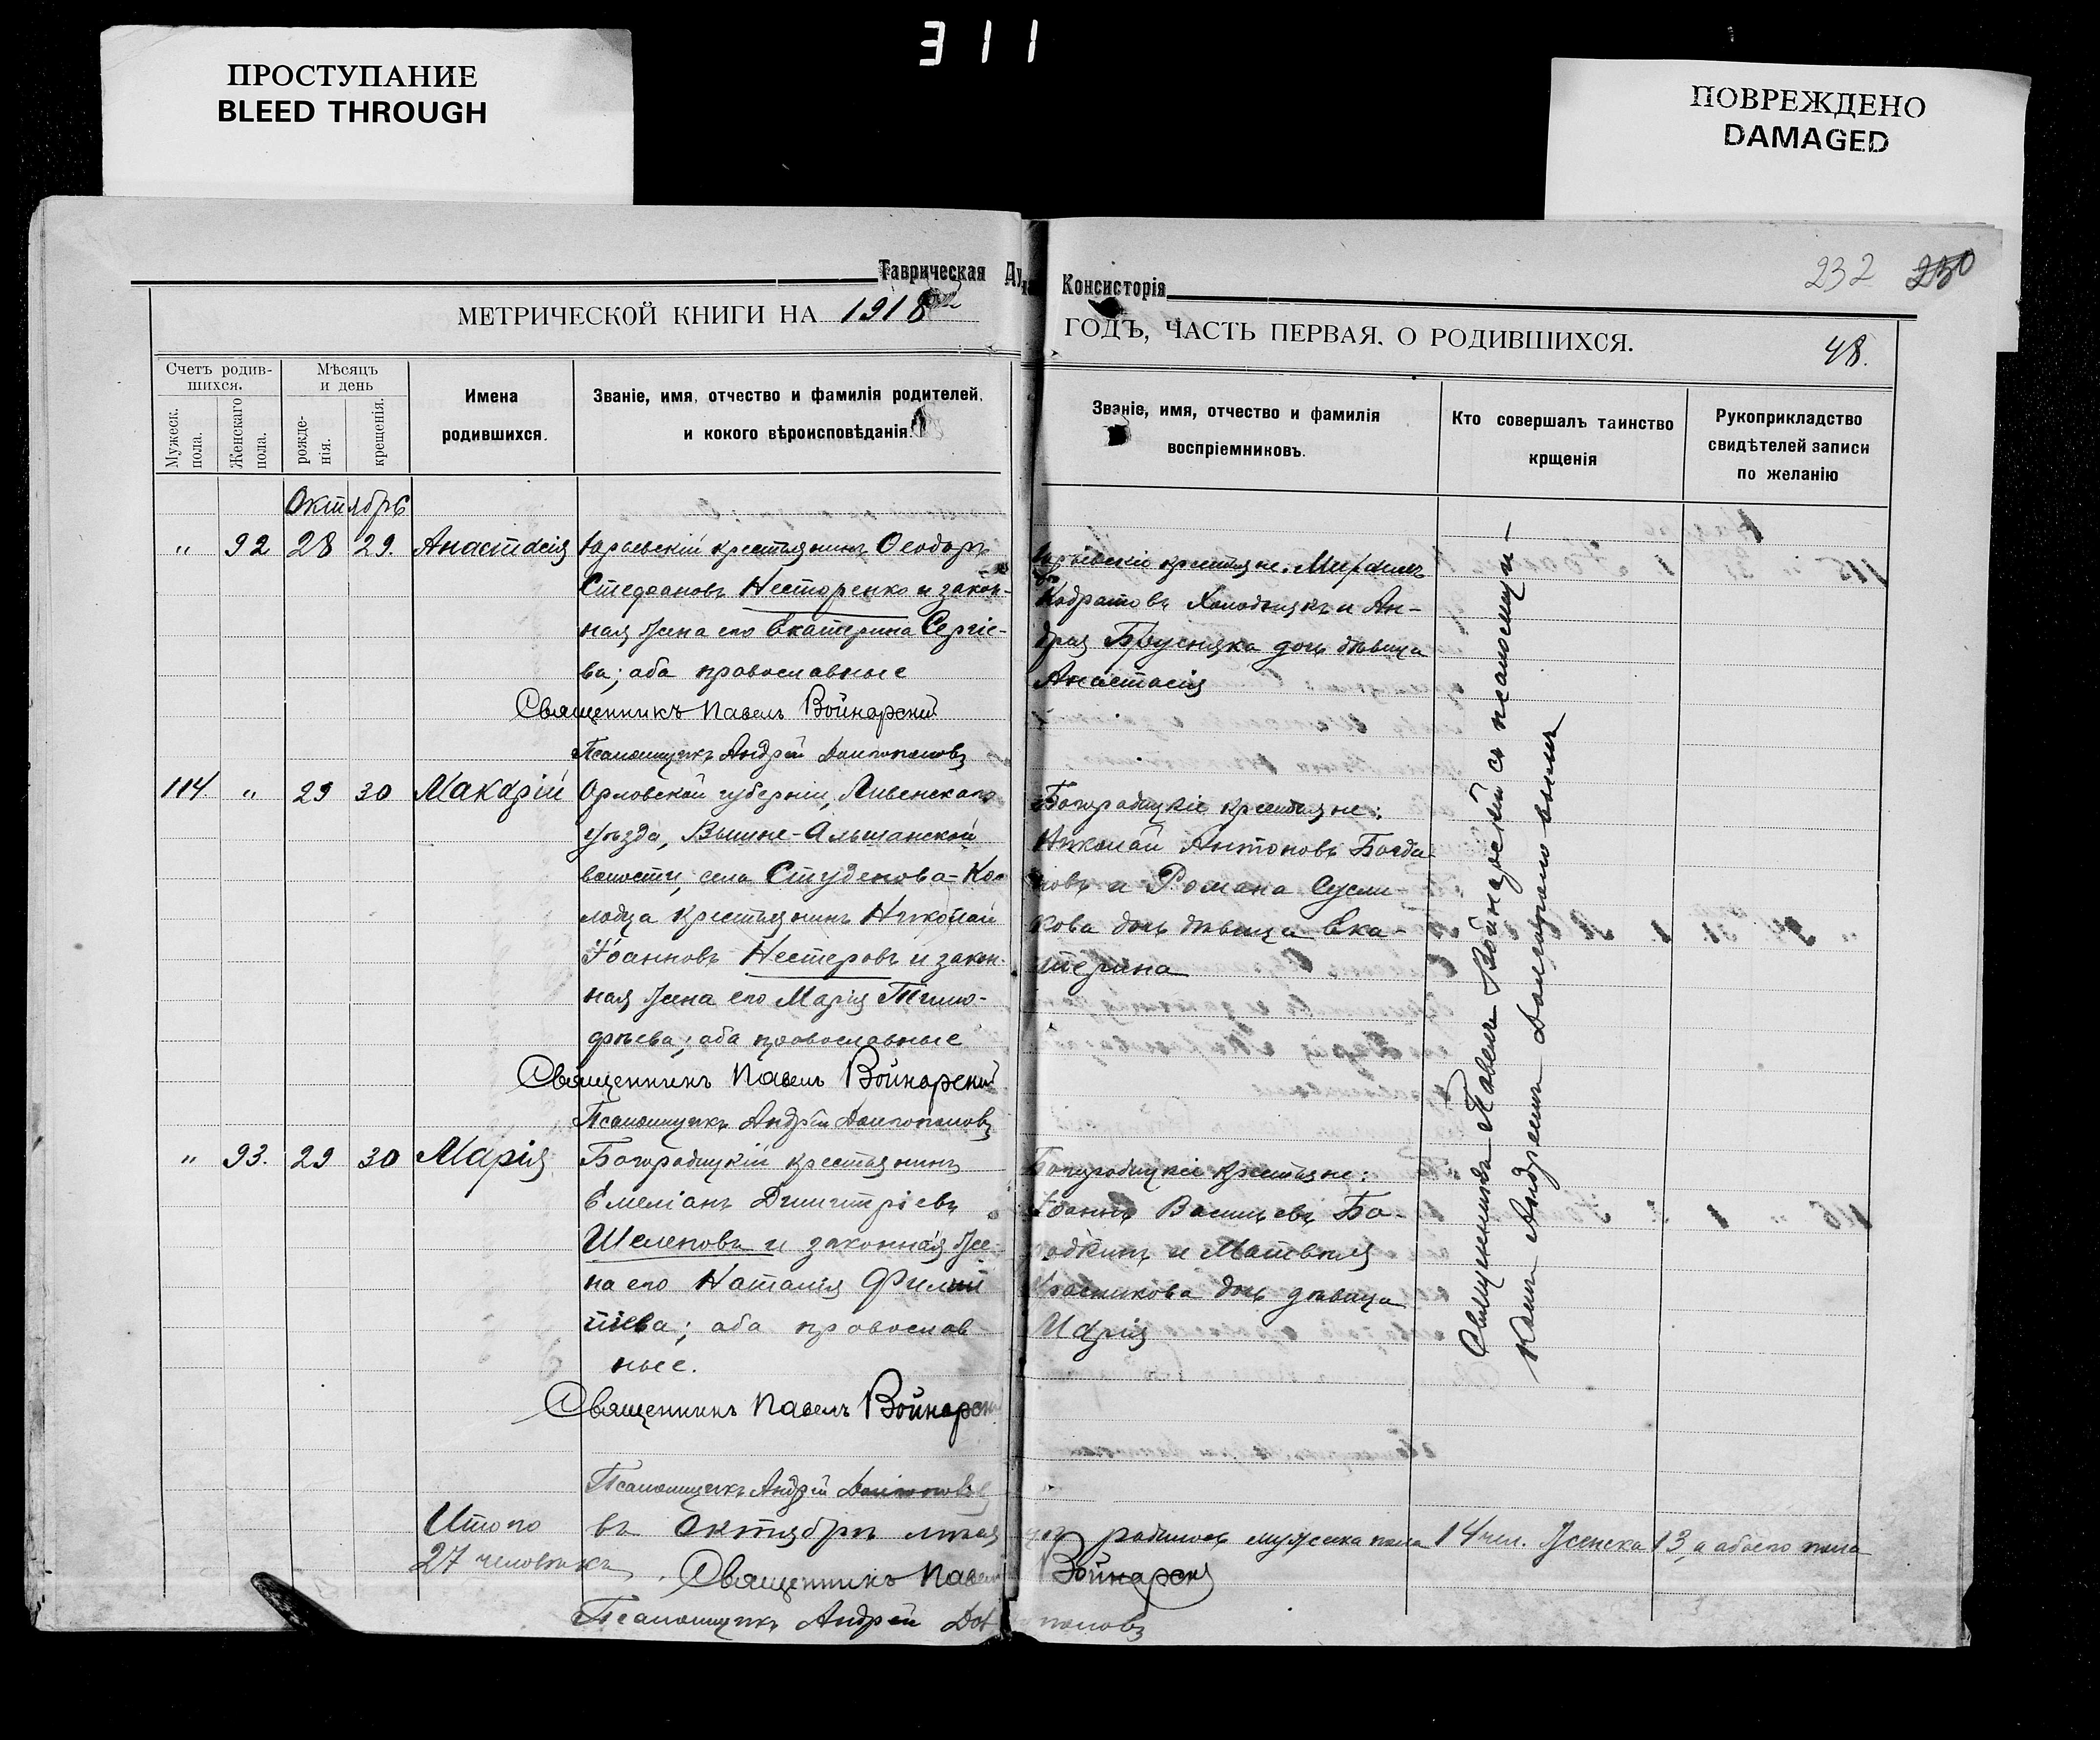 311
ПРОСТУПАНИЕ
BLEED THROUGH
ПОВРЕЖДЕНО
DAMAGED
Таврическая Ду Консисторія
232 250
МЕТРИЧЕСКОЙ КНИГИ НА 1918 ГОДЪ, ЧАСТЬ ПЕРВАЯ, О РОДИВШИХСЯ.
48.
Счетъ родив-
шихся.
Мужеск.
пола.
Женскаго
пола.
Мѣсяцъ
и день
рожде-
нія.
крещенія.
Имена
родившихся.
Званіе, имя, отчество и фамилія родителей,
и кокого вѣроисповѣданія.
Званіе, имя, отчество и фамилія
воспріемниковъ.
Кто совершалъ таинство
крщенія
Рукоприкладство
свидѣтелей записи
по желанію
Октябрь
" 92 28 29. Анастасія
Юрьевскій крестьянинъ Ѳеодоръ
Стефановъ Несторенко и закон-
ная жена его Екатерина Сергіе-
ва; оба православные
Священникъ Павелъ Войнарский
Псаломщикъ Андрей Долгополовъ
Юрьевскіе крестьяне:
и Ан-
дрея дочь дѣвица
Анастасія
114. " 29 30 Макарій
Орловской губерніи, Ливенскаго
уѣзда, Вышне-Альшанской
волости, села Студенова-Ко-
лодца крестьянинъ Николай
Іоанновъ Нестеровъ и закон-
ная жена его Марія Тимо-
фѣева; оба православные
Священникъ Павелъ Войнарский
Псаломщикъ Андрей Долгополовъ
Богородицкіе крестьяне:
Николай Антоновъ Богда-
новъ и Романа Сусли-
кова дочь дѣвица Ека-
терина
" 93. 29 30 Марія
Богородицкій крестьянинъ
Емеліанъ Димитріевъ
Шелеповъ и законная же-
на его Наталія Филип
піева; оба православ-
ные.
Священникъ Павелъ Войнарский
Псаломщикъ Андрей Долгополовъ
Богородицкіе крестьяне:
Іоаннъ Васильевъ
и Матвѣя
дочь дѣвица
Марія
Священникъ Павелъ Войнарский съ псаломщи-
комъ Андреемъ Долгополовымъ
Итого въ Октябрѣ мѣсяцѣ родилось мужска пола 14 чел. женска 13, а обоего пола
27 человѣкъ.
Священникъ Павелъ Войнарский
Псаломщикъ Андрей Долгополовъ